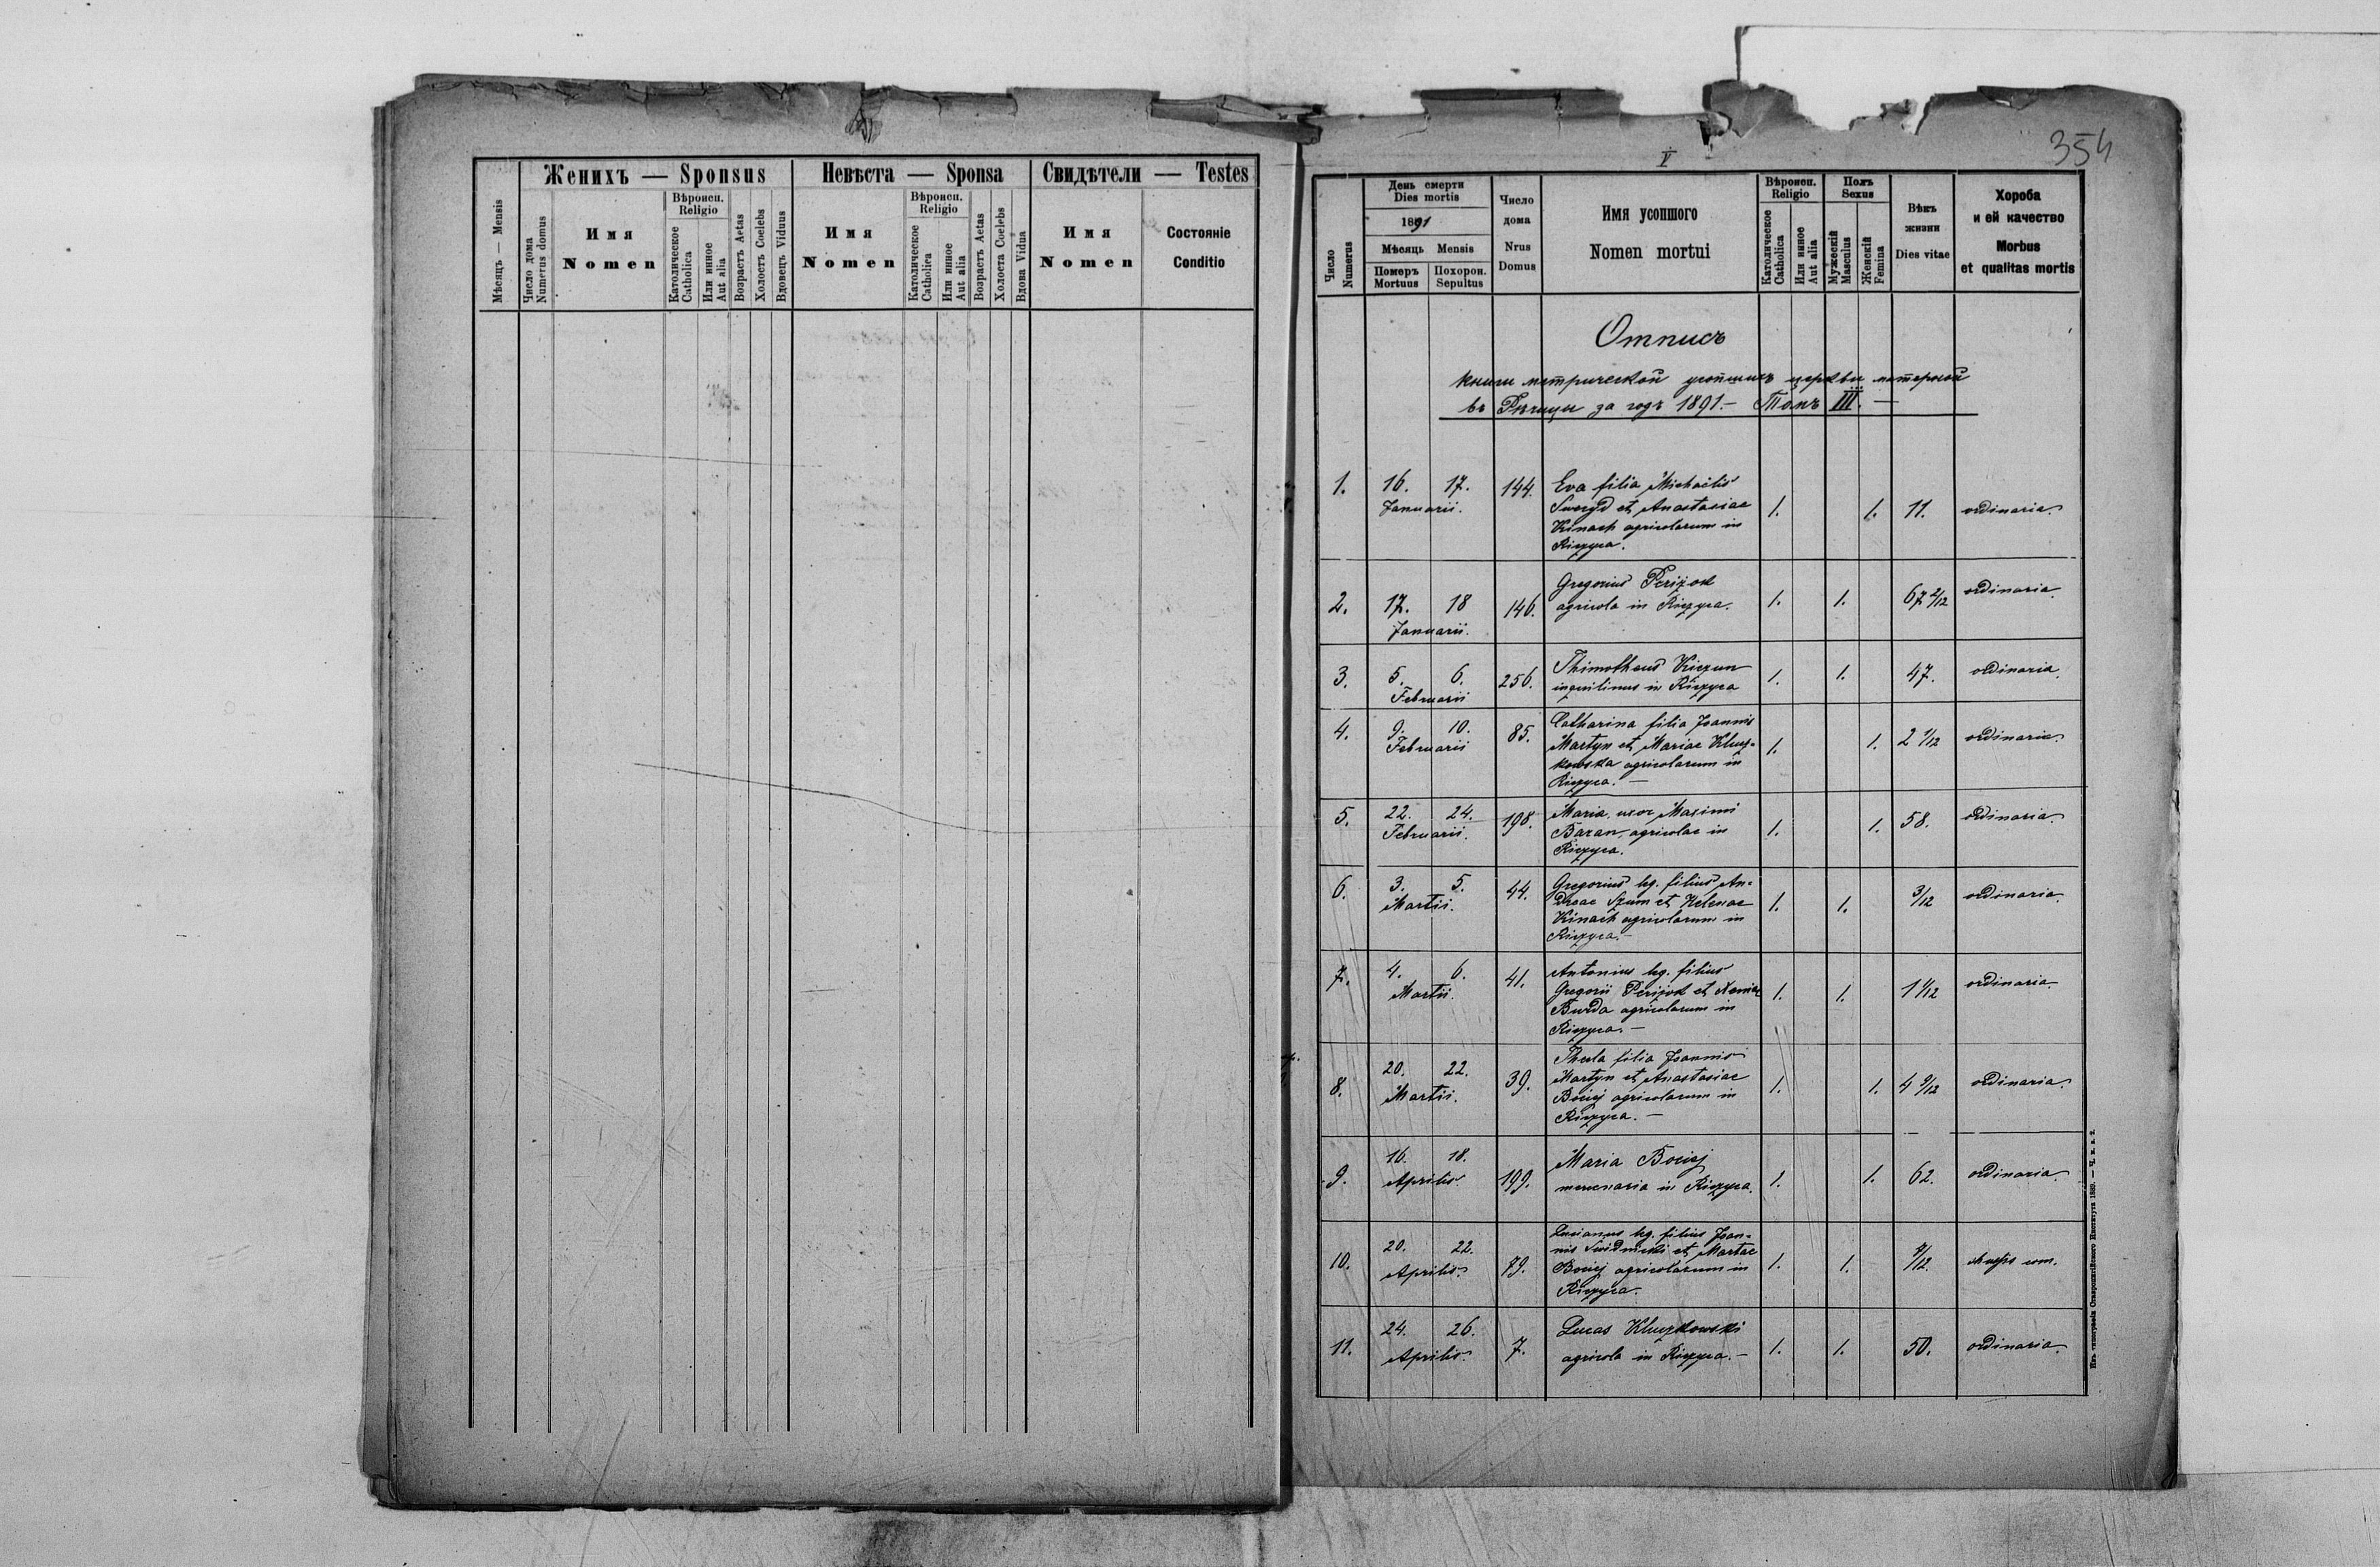 Женихъ — Sponsus
Невѣста — Sponsa
Свидѣтели — Testes
Мѣсяцъ — Mensis
Число дома
Numerus domus
Имя
Nomen
Вѣроисп.
Religio
Католическое
Catholica
Или инное
Aut alia
Возрастъ Aetas
Холостъ Coelebs
Вдовецъ Viduus
Имя
Nomen
Вѣроисп.
Religio
Католическое
Catholica
Или инное
Aut alia
Возрастъ Aetas
Холоста Coelebs
Вдова Vidua
Имя
Nomen
Состоянiе
Conditio
354
V
Число
Numerus
День смерти
Dies mortis
1891
Мѣсяць Mensis
Померъ
Mortuus
Похорон.
Sepultus
Число
дома
Nrus
Domus
Имя усопшого
Nomen mortui
Вѣроисп.
Religio
Католическое
Catholica
Или инное
Aut alia
Полъ
Sexus
Мужескій
Masculus
Женскій
Femina
Вѣкъ
жизни
Dies vitae
Хороба
и ей качество
Morbus
et qualitas mortis
Отписъ
книги метрической усопшихъ церкви матерной
въ Рѣчици за годъ 1891.— Томъ III. —
1. 16. 17. 144. Eva filia Michaelis
Januarii. et Anastasiae 1. 1. 11. ordinaria.
Kinach agricolarum in
Riczyca.
2. 17. 18 146. Gregorius Perizok
agricola in Riczyca. 1. 1. 67 2/12 ordinaria.
Januarii.
3. 5. 6. 256. Thimotheus Kiczun
Februarii inquilinus in Riczyca 1. 1. 47. ordinaria.
4. 9. 10. 85. Catharina filia Joannis
Februarii Martyn et Mariae Klucz-
kowska agricolarum in 1. 1. 2 1/12 ordinaria.
Riczyca. —
5. 22. 24. 198. Maria uxor Maximi
Februarii. Baran, agricolae in 1. 1. 58. ordinaria.
Riczyca.
6. 3. 5. 44. Gregorius lg. filius An-
Martii. dreae Szum et Helenae 1. 1. 3/12 ordinaria.
Kinach agricolarum in
Riczyca.—
7. 4. 6. 41. Antonius lg. filius
Martii. Gregorii Perizok et Xeniae 1. 1. 1 1/12 ordinaria.
Burda agricolarum in
Riczyca. —
8. 20. 22. 39. Thecla filia Joannis
Martii. Martyn et Anastasiae 1. 1. 4 9/12 ordinaria.
Bociej agricolarum in
Riczyca. —
9. 16. 18. 199. Maria Bociej
Aprilis. mercenaria in Riczyca. 1. 1. 62. ordinaria.
10. 20. 22. 79. Lucianus lg. filius Joan-
Aprilis. nis Swidnicki et Martae
Bociej agricolarum in 1. 1. com.
Riczyca.
11. 24. 26. 7. Lucas Kluczkowski
Aprilis. agricola in Riczyca. — 1. 1. 50. ordinaria.
Изъ типографіи Ставропигійского Института 1889. — Ч. в. в. 2.